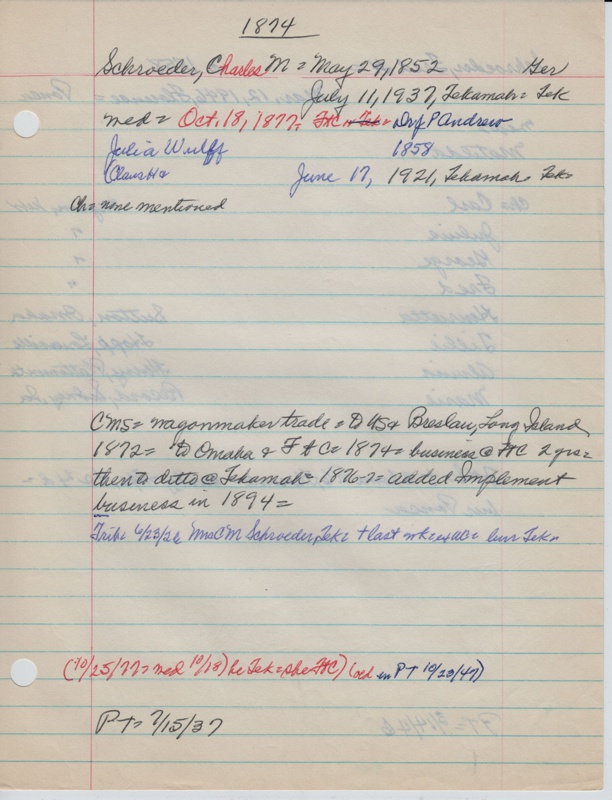 1874
Schroeder, Charles M = May 29, 1852 Ger
July 11, 1937, Tekamah = Tek
med = Oct. 18, 1877 = FtC = Tek = D of P Andrew
Julia Wulff 1858
Claus H & June 17, 1921, Tekamah = Tek =
Ch = none mentioned
CMS = wagonmaker trade = to US & Breslau, Long Island
1872 = to Omaha & Ft C = 1874 = business @ FtC 2 yrs =
then to ditto @ Tekamah = 1876-7 = added Implement
business in 1894 =
Trib = 6/23/21 Mrs CM Schroeder, Tek = + last wk = = bur Tek =
(10/25/77 = med 10/18) he Tek = she FtC) (ad in PT 10/23/47)
PT = 7/15/37